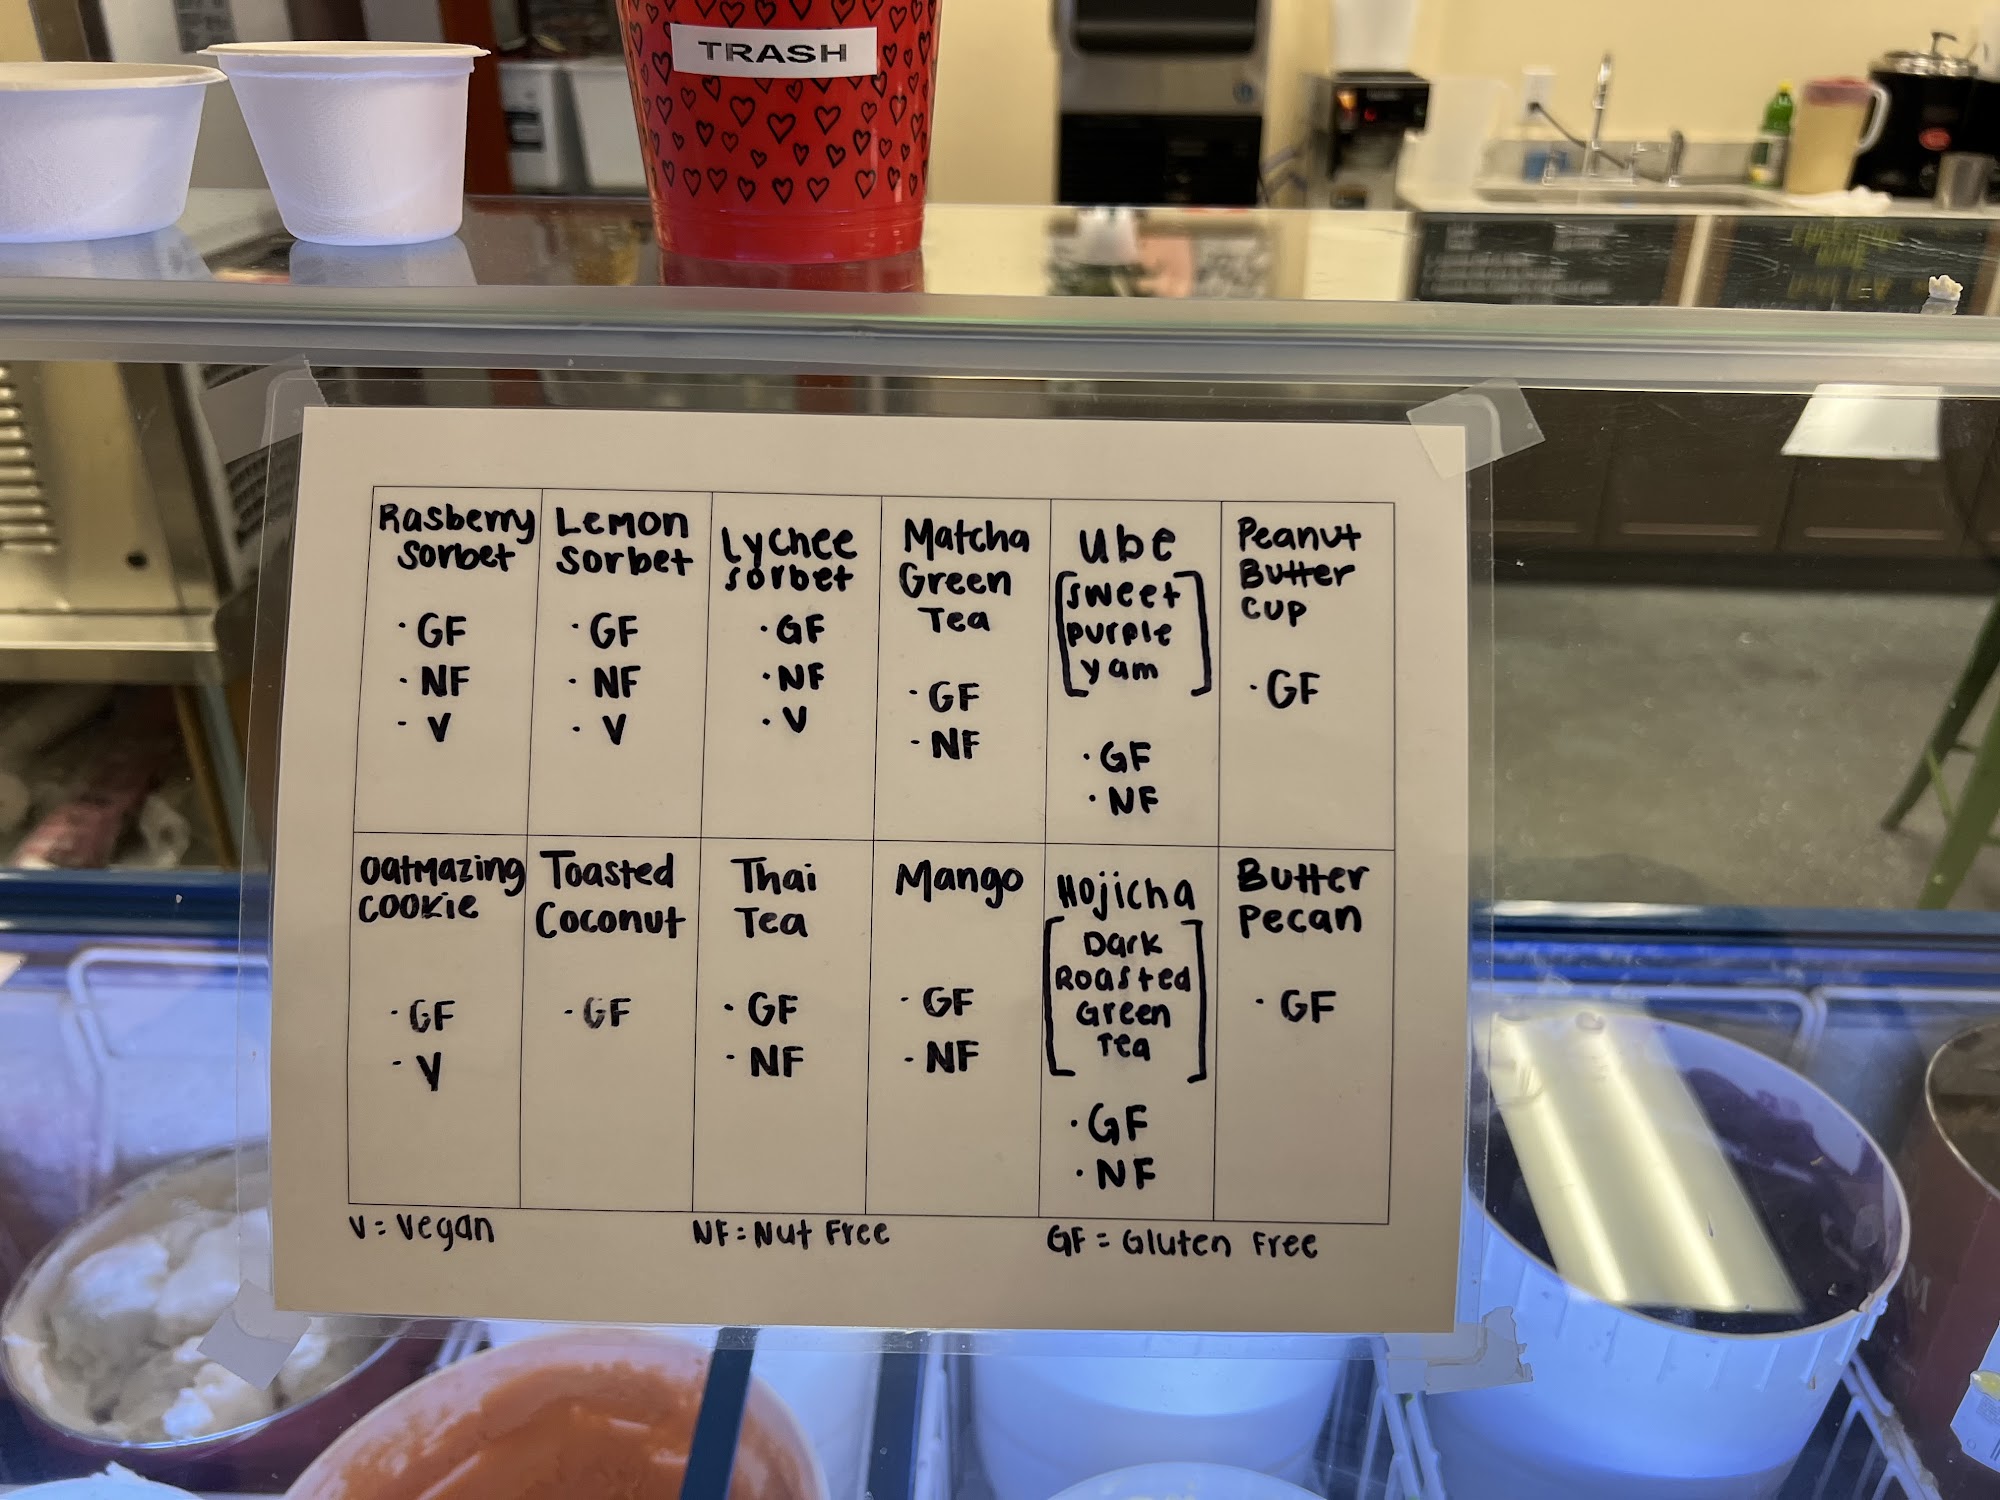 TRASH
Rasberry
Sorbet
· GF
· NF
- V
Lemon
Sorbet
· GF
· NF
· V
Lychee
Sorbet
· GF
· NF
· V
Matcha
Green
Tea
· GF
· NF
Ube
[sweet
purple
yam]
· GF
· NF
Peanut
Butter
Cup
· GF
Oatmazing
Cookie
· GF
· V
Toasted
Coconut
· GF
Thai
Tea
· GF
· NF
Mango
· GF
· NF
Hojicha
[Dark
Roasted
Green
Tea]
· GF
· NF
Butter
Pecan
· GF
V = Vegan
NF = Nut Free
GF = Gluten Free